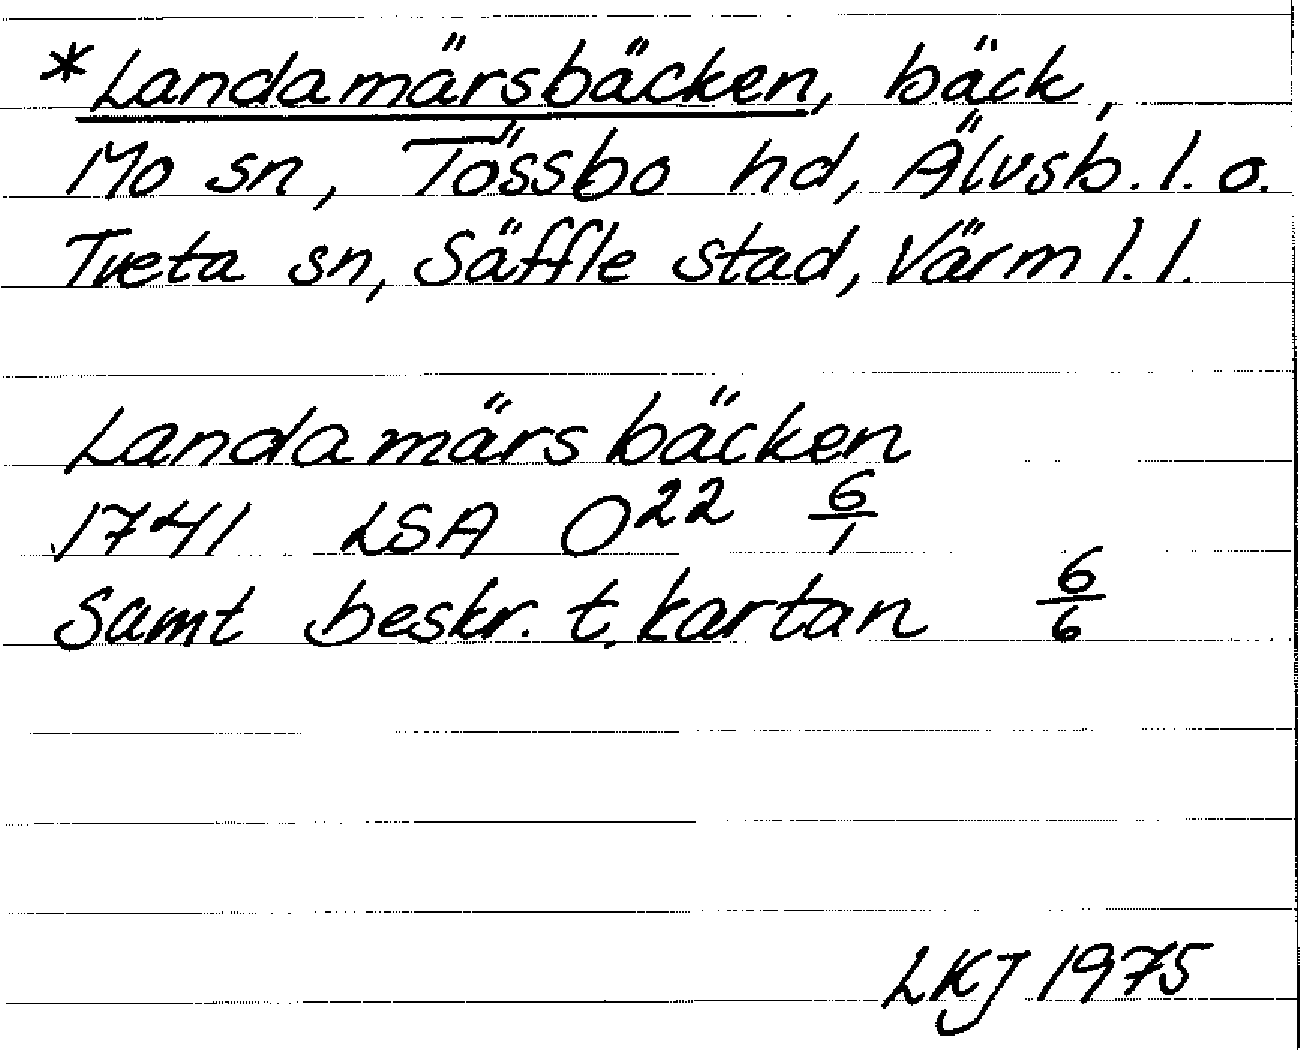 *Landamärsbäcken, bäck,
Mo sn, Tössbo hd, Älvsb. l. o.
Tveta sn, Säffle stad, Värml. l.
Landamärsbäcken
1741 LSA O²² 6/1
Samt beskr. t. kartan 6/6
LKJ 1975